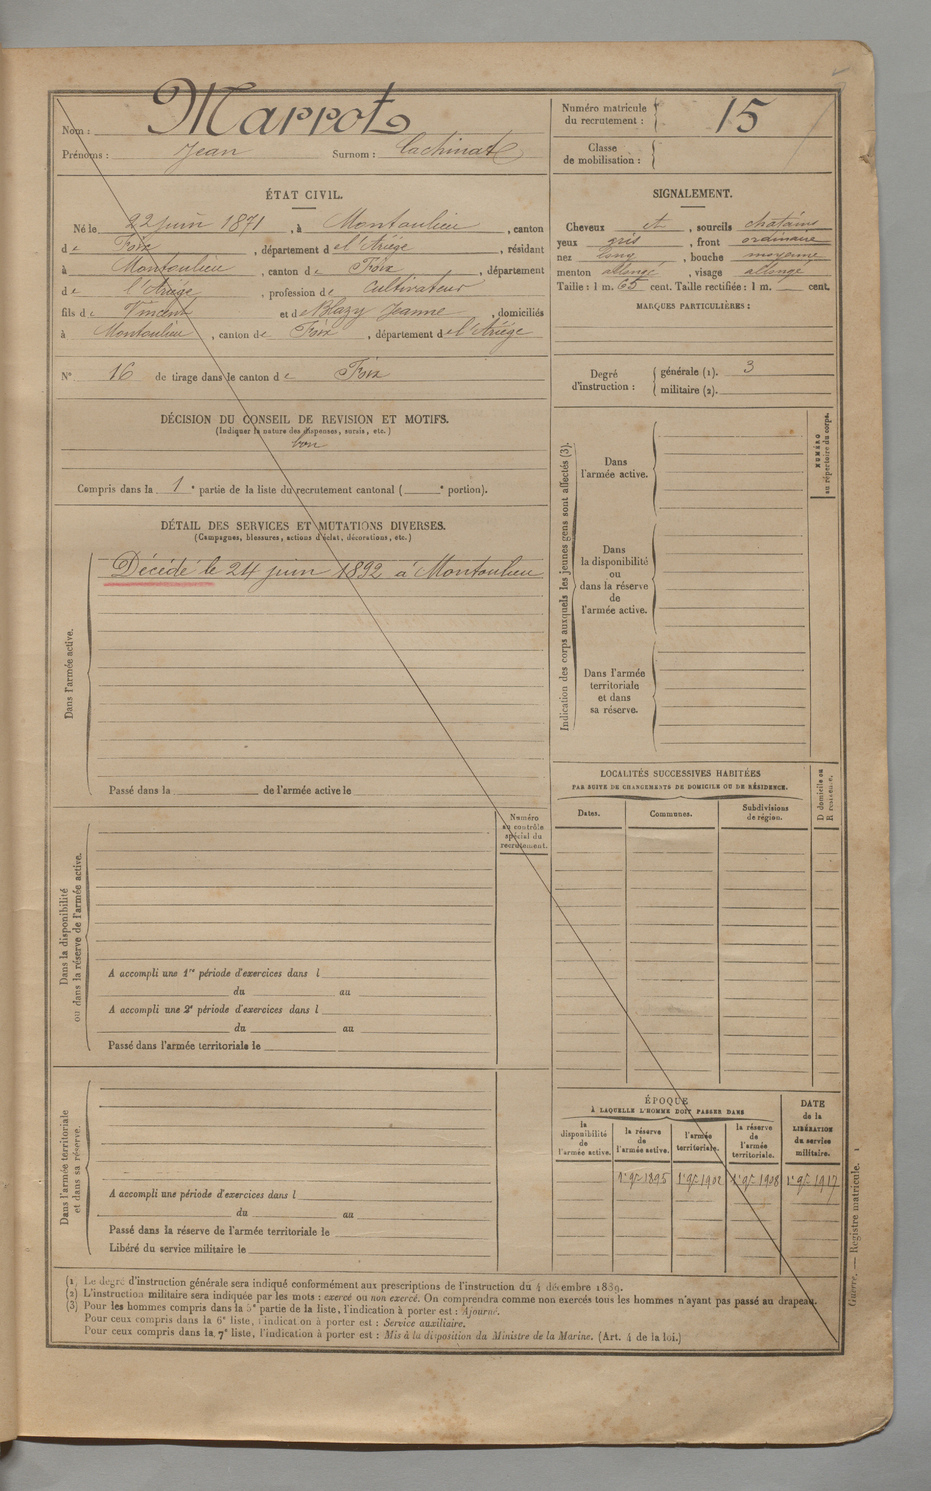 Nom : Marrot
Prénoms : Jean Surnom : Cachinat
Numéro matricule
du recrutement : 15
Classe
de mobilisation :
ÉTAT CIVIL.
Né le 22 juin 1871, à Montoulieu, canton
de Foix, département de l'Ariége, résidant
à Montoulieu, canton de Foix, département
de l'Ariége, profession de Cultivateur
fils de Vincent et de Blazy Jeanne, domiciliés
à Montoulieu, canton de Foix, département de l'Ariége
N° 16 de tirage dans le canton de Foix
SIGNALEMENT.
Cheveux et, sourcils chatains
yeux gris, front ordinaire
nez long, bouche moyenne
menton allongé, visage allongé
Taille : 1 m. 65 cent. Taille rectifiée : 1 m. cent.
MARQUES PARTICULIÈRES :
Degré
d'instruction :
générale (1). 3
militaire (2).
DÉCISION DU CONSEIL DE REVISION ET MOTIFS.
(Indiquer la nature des dispenses, sursis, etc.)
bon
Compris dans la 1e partie de la liste du recrutement cantonal ( e portion).
DÉTAIL DES SERVICES ET MUTATIONS DIVERSES.
(Campagnes, blessures, actions d'éclat, décorations, etc.)
Dans l'armée active.
Décédé le 24 juin 1892 à Montoulieu
Passé dans la de l'armée active le
Indication des corps auxquels les jeunes gens sont affectés (3).
Dans
l'armée active.
Dans
la disponibilité
ou
dans la réserve
de
l'armée active.
Dans l'armée
territoriale
et dans
sa réserve.
NUMÉRO
au répertoire du corps.
LOCALITÉS SUCCESSIVES HABITÉES
PAR SUITE DE CHANGEMENTS DE DOMICILE OU DE RÉSIDENCE.
Dates. Communes. Subdivisions
de région.
D domicile ou
R résidence.
Dans la disponibilité
ou dans la réserve de l'armée active.
Numéro
au contrôle
spécial du
recrutement.
A accompli une 1re période d'exercices dans l
du au
A accompli une 2e période d'exercices dans l
du au
Passé dans l'armée territoriale le
Dans l'armée territoriale
et dans sa réserve.
A accompli une période d'exercices dans l
du au
Passé dans la réserve de l'armée territoriale le
Libéré du service militaire le
ÉPOQUE
À LAQUELLE L'HOMME DOIT PASSER DANS
la
disponibilité
de
l'armée active.
la réserve
de
l'armée active.
l'armée
territoriale.
la réserve
de
l'armée
territoriale.
DATE
de la
LIBÉRATION
du service
militaire.
1er 9bre 1895 1er 9bre 1902 1er 9bre 1908 1er 9bre 1917
(1) Le degré d'instruction générale sera indiqué conformément aux prescriptions de l'instruction du 4 décembre 1889.
(2) L'instruction militaire sera indiquée par les mots : exercé ou non exercé. On comprendra comme non exercés tous les hommes n'ayant pas passé au drapeau.
(3) Pour les hommes compris dans la 5e partie de la liste, l'indication à porter est : Ajourné.
Pour ceux compris dans la 6e liste, l'indication à porter est : Service auxiliaire.
Pour ceux compris dans la 7e liste, l'indication à porter est : Mis à la disposition du Ministre de la Marine. (Art. 4 de la loi.)
Guerre. — Registre matricule. 1